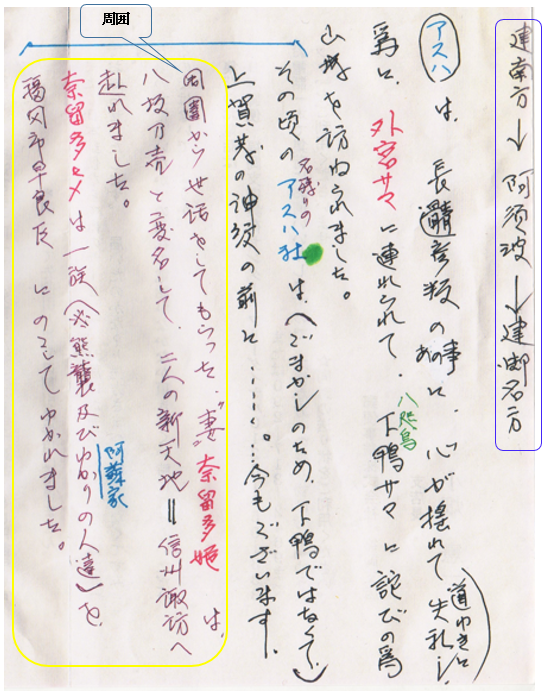 周囲
建南方→阿須波→建御名方
アスハは、長髄彦叛のあの事に、心が揺れて失礼し
道ゆきに
為に、外宮サマに連れられて、下鴨サマに詫びの為
八咫烏
山城を訪ねられました。
その頃のアスハ社は、(ごまかしのため、下鴨ではなくて)
名残りの
上賀茂の神紋の前に……。今もございます。
周囲から世話をしてもらった、"妻"奈留多姫は、
八坂刀売と変名して、二人の新天地=信州諏訪へ
赴れました。
奈留多ヒメは一族(熊襲及びゆかりの人達)を、
阿蘇家
福岡市早良区にのこしてゆかれました。